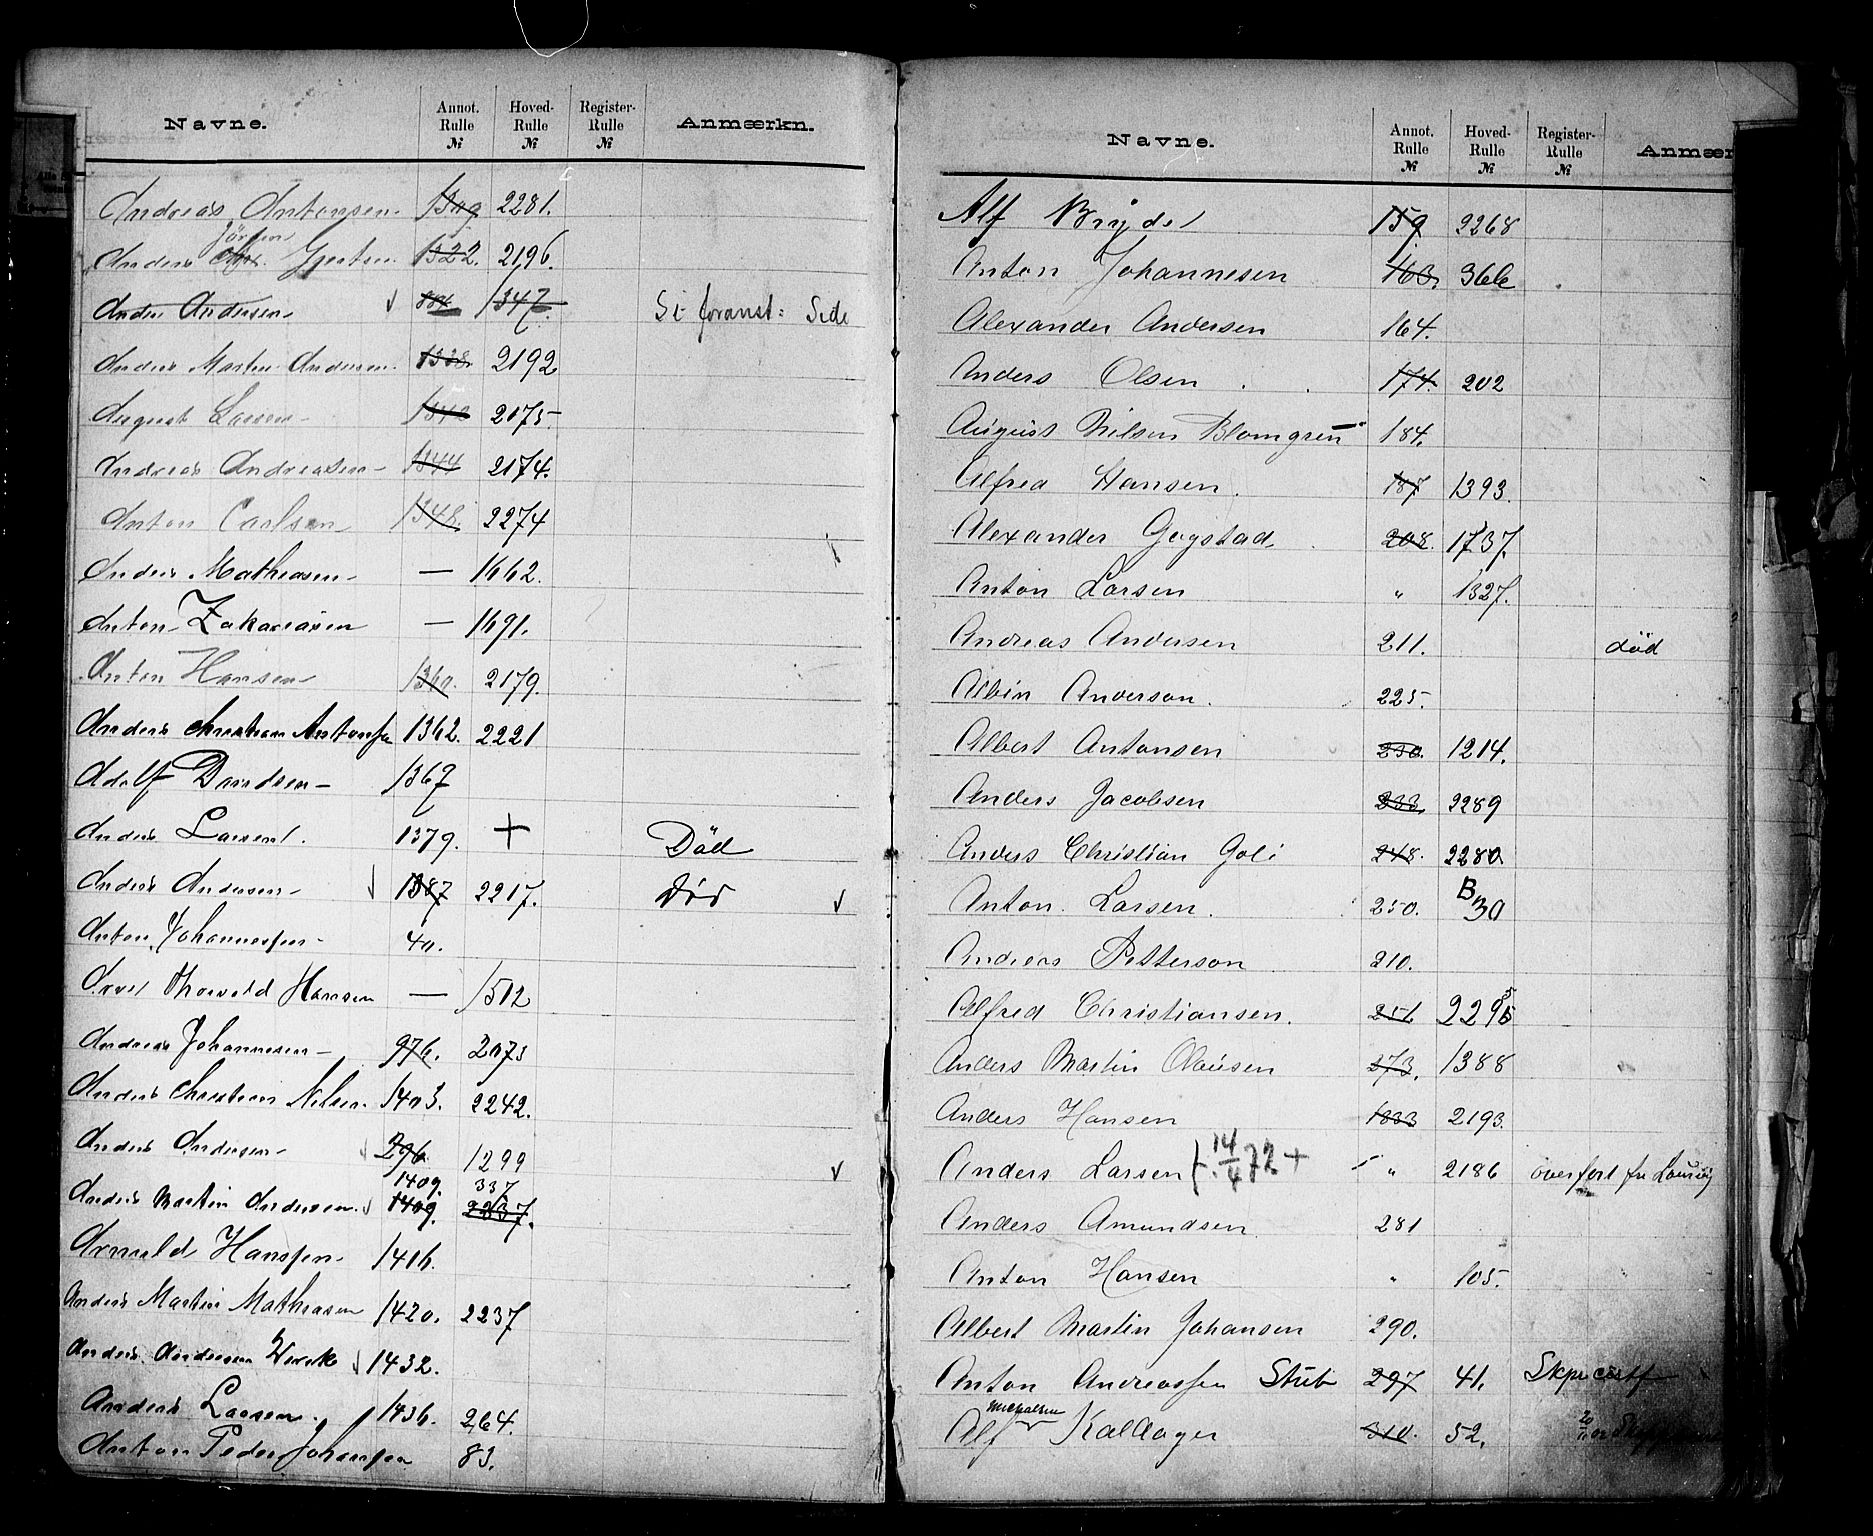 Navne. Annot. Rulle № Hoved- Rulle № Register- Rulle № Anmærkn.
Andreas Antonsen 1309 2281.
Jörgen
Anders Chr. Gjertsen 1322. 2196.
Anders Andersen 884 1347. Se foranst: Side
Anders Martin Andersen 1338. 2192
August Larsen 1340 2075
Andreas Andreasen 1344 2174.
Anton Carlsen 1348. 2274
Anders Mathiasen — 1662.
Anton Zakariasen — 1691.
Anton Hansen 1360. 2179.
Anders Christian Antonsen 1362. 2221
Adolf Davidsen 1367
Anders Larsen 1379. + Död
Anders Andersen 1387 2217. Död
Anton Johannessen 40.
Axel Thorvald Hansen — 1512
Andreas Johannesen 976. 2073
Anders Christian Nilsen 1403. 2242.
Anders Andersen 296. 1299
1409. 337
Anders Martin Andersen 1409. 2237.
Arnuld Hanssen 1416.
Anders Martin Mathiasen 1420. 2237
Anders Andersen 1432.
Anders Larsen 1436. 264.
Anton Peder Johansen 83.
Navne. Annot. Rulle № Hoved- Rulle № Register- Rulle № Anmær
Alf Bryde 159 2268
Anton Johannesen 163. 366
Alexander Andersen 164.
Anders Olsen 174. 202
August Nilsen Blomgren 184.
Alfred Hansen. 187 1393.
Alexander Gogstad 208. 1737.
Anton Larsen " 1327.
Andreas Andersen 211. död
Albin Anderson. 225.
Albert Antonsen 230. 1214.
Anders Jacobsen 233. 2289
Anders Christian Goli 248. 2280
Anton Larsen. 250. B 30
Andreas Petterson 210.
Alfred Christiansen. 251 2295
Anders Martin Olausen 273. 1388
Anders Hansen 1333 2193.
Anders Larsen +. 14/4 72 + " 2186 overført fra Laurvig
Anders Amundsen 281
Anton Hansen " 105.
Albert Martin Johansen 290.
Anton Andreassen Stub 297 41. Skpr certf
Michalsen
Alf Kallager 310. 52.